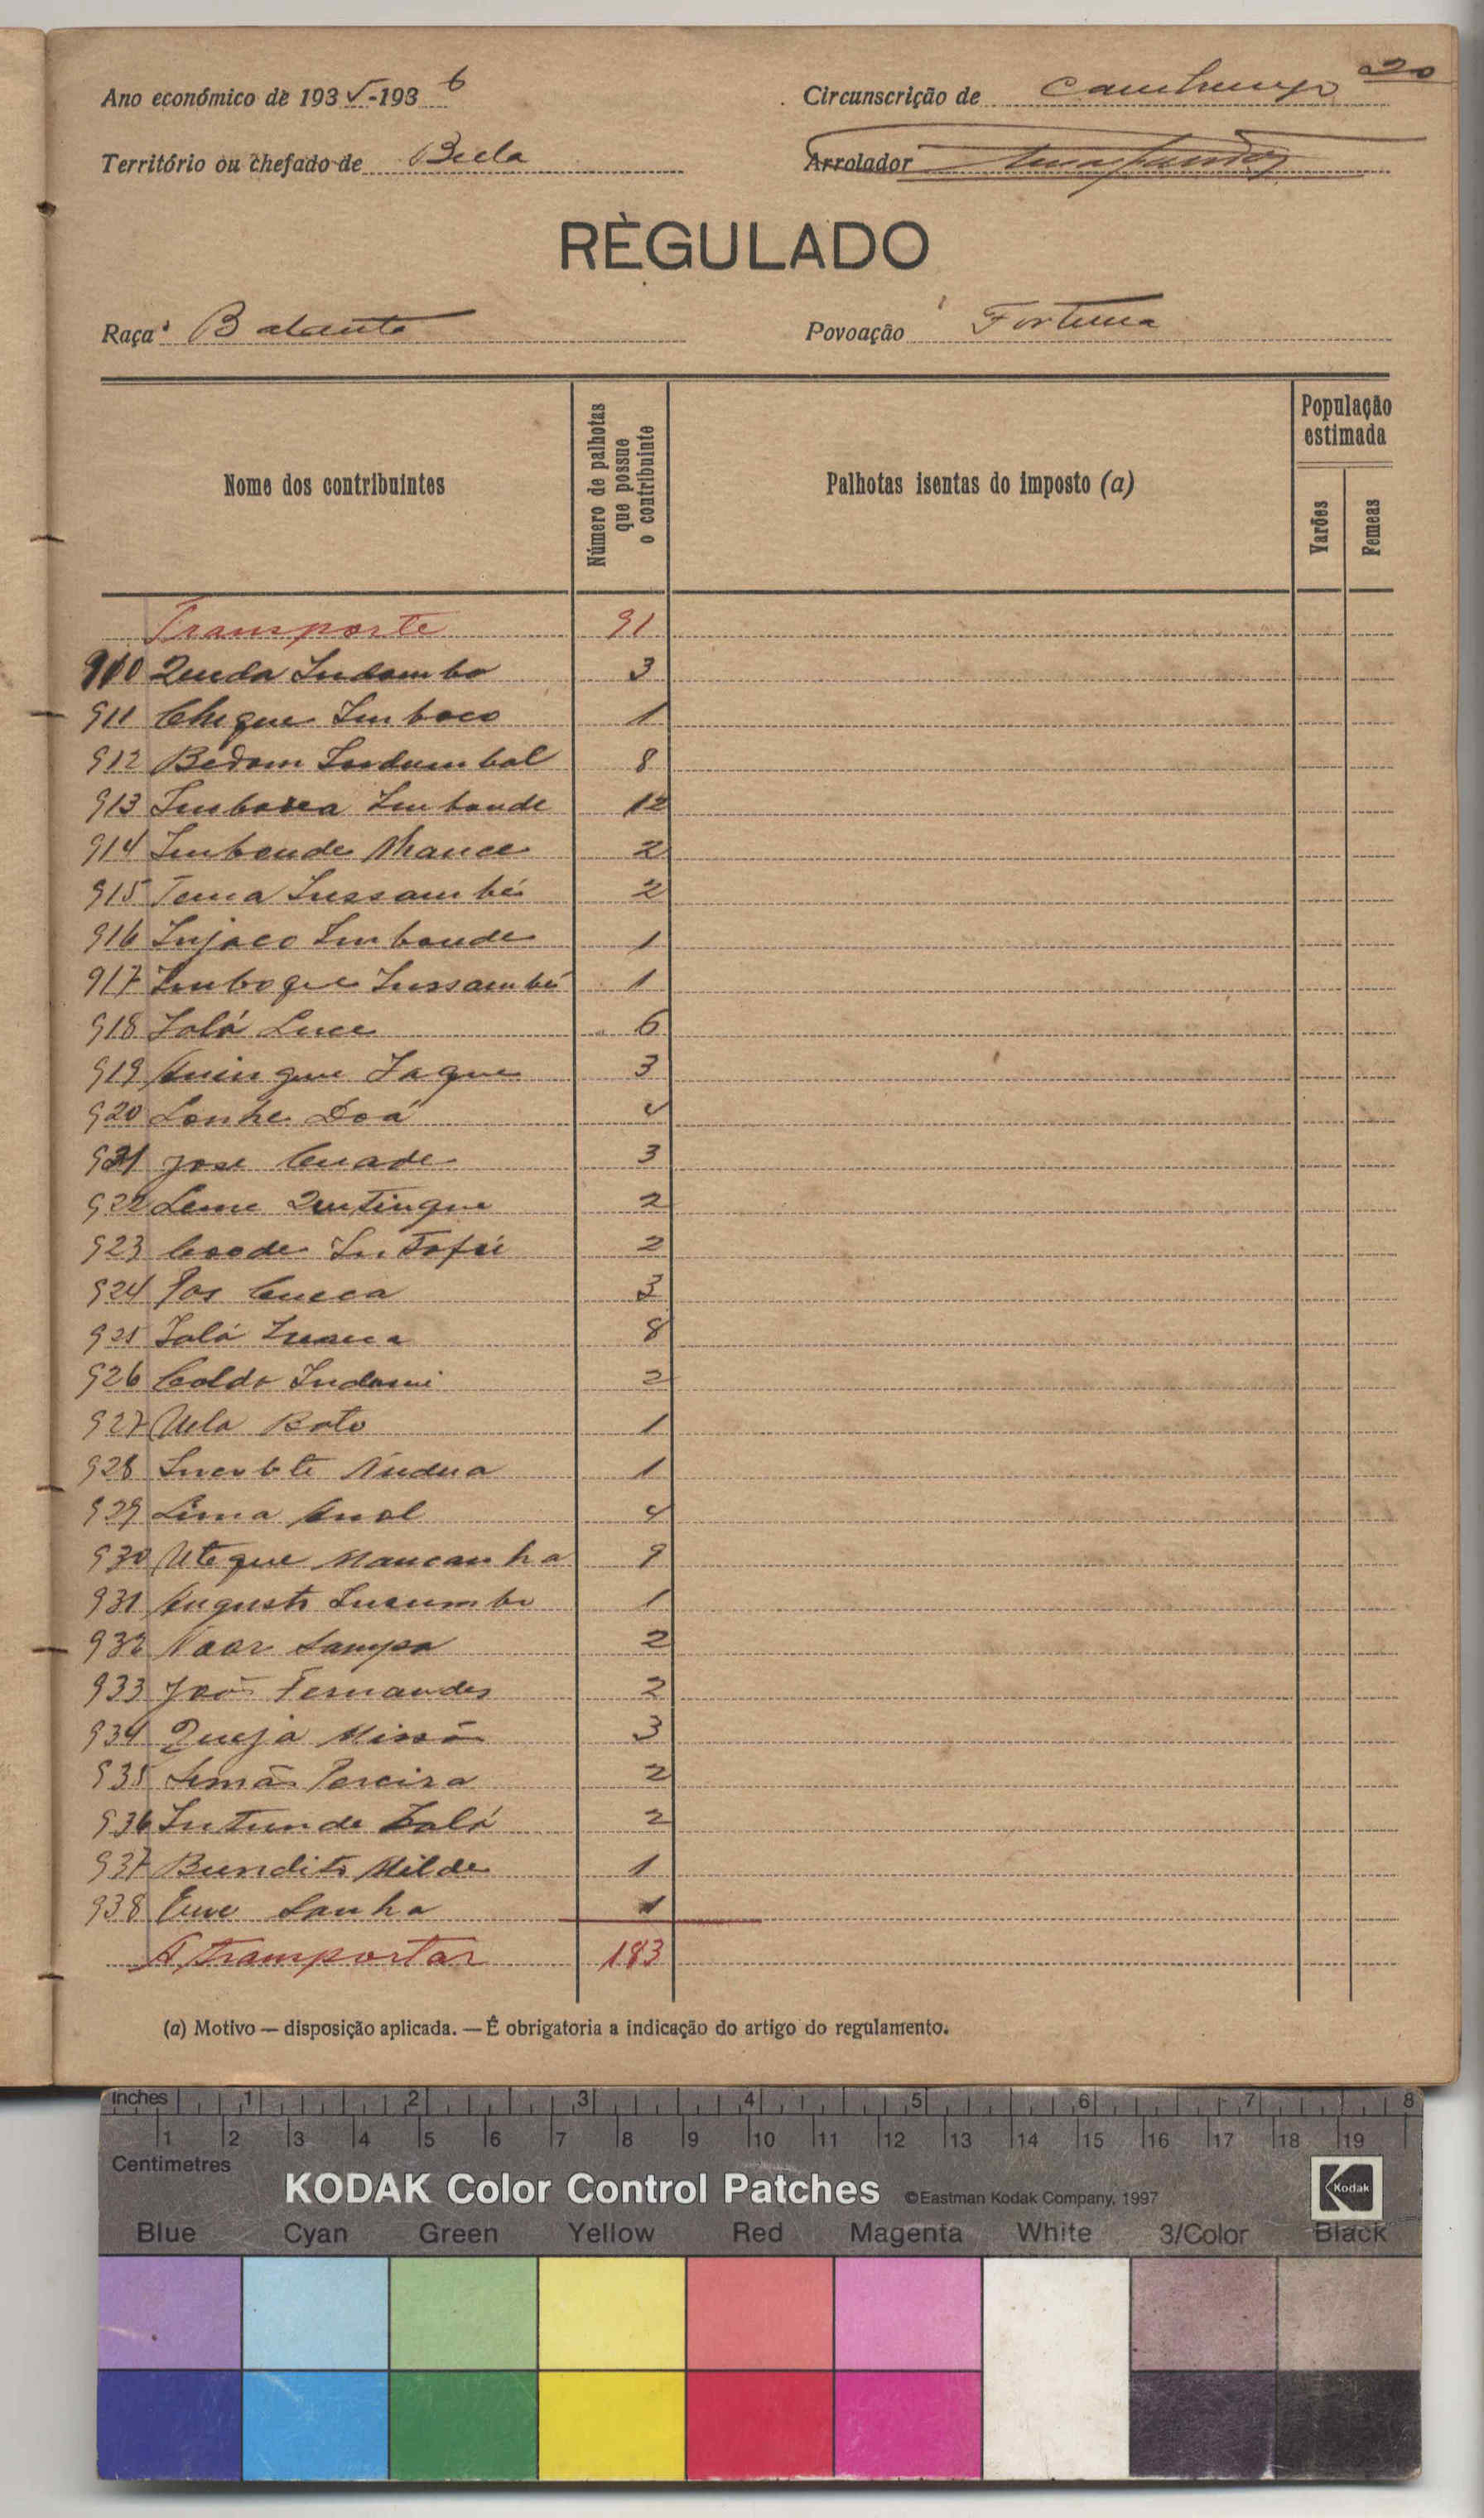 20
Ano económico de 1935-1936
Circunscrição de
Território ou chefado de Biela
Arrolador
REGULADO
Raça Balanta
Povoação Fortuna
Nome dos contribuintes
Número de palhotas que possue o contribuinte
Palhotas isentas do imposto (a)
População estimada
Varões
Femeas
Transporte 91
910 Quida Indombo 3
911 Chique Imboco 1
912 Bedom Indumbal 8
913 Imbonde 12
914 Imbonde 2
915 Tema Inssambé 2
916 Injaco Imbonde 1
917 Imboque Inssambé 1
918 Ialá Luce 6
919 Iaque 3
920 Lonhe Doá 4
921 Jose Cuade 3
922 2
923 Coode 2
924 Pos Cueca 3
925 Ialá 8
926 Coldo Indami 2
927 Uela Boto 1
928 1
929 Lima Anol 4
930 Uteque Mancanha 9
931 Augusto Incumbo 1
932 Naor Sampa 2
933 João Fernandes 2
934 Queja Missó 3
935 Simão Pereira 2
936 Intunde Ialá 2
937 Bundito Milde 1
938 Sanha 1
A transportar 183
(a) Motivo — disposição aplicada. — É obrigatoria a indicação do artigo do regulamento.
inches 1 2 3 4 5 6 7 8
1 2 3 4 5 6 7 8 9 10 11 12 13 14 15 16 17 18 19
Centimetres
KODAK Color Control Patches ©Eastman Kodak Company, 1997 Kodak
Blue Cyan Green Yellow Red Magenta White 3/Color Black